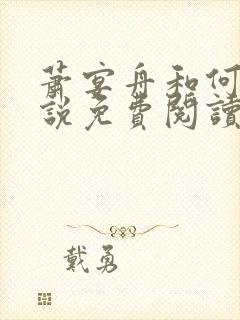 萧宴舟和何
説免費閱讀
戴勇